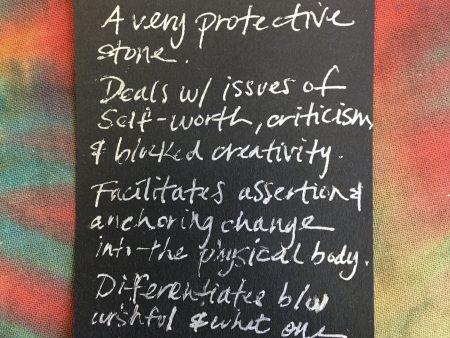 A very protective
stone.
Deals w/ issues of
self-worth, criticism,
& blocked creativity.
Facilitates assertion &
anchoring change
into the physical body.
Differentiates b/w
wishful & what one